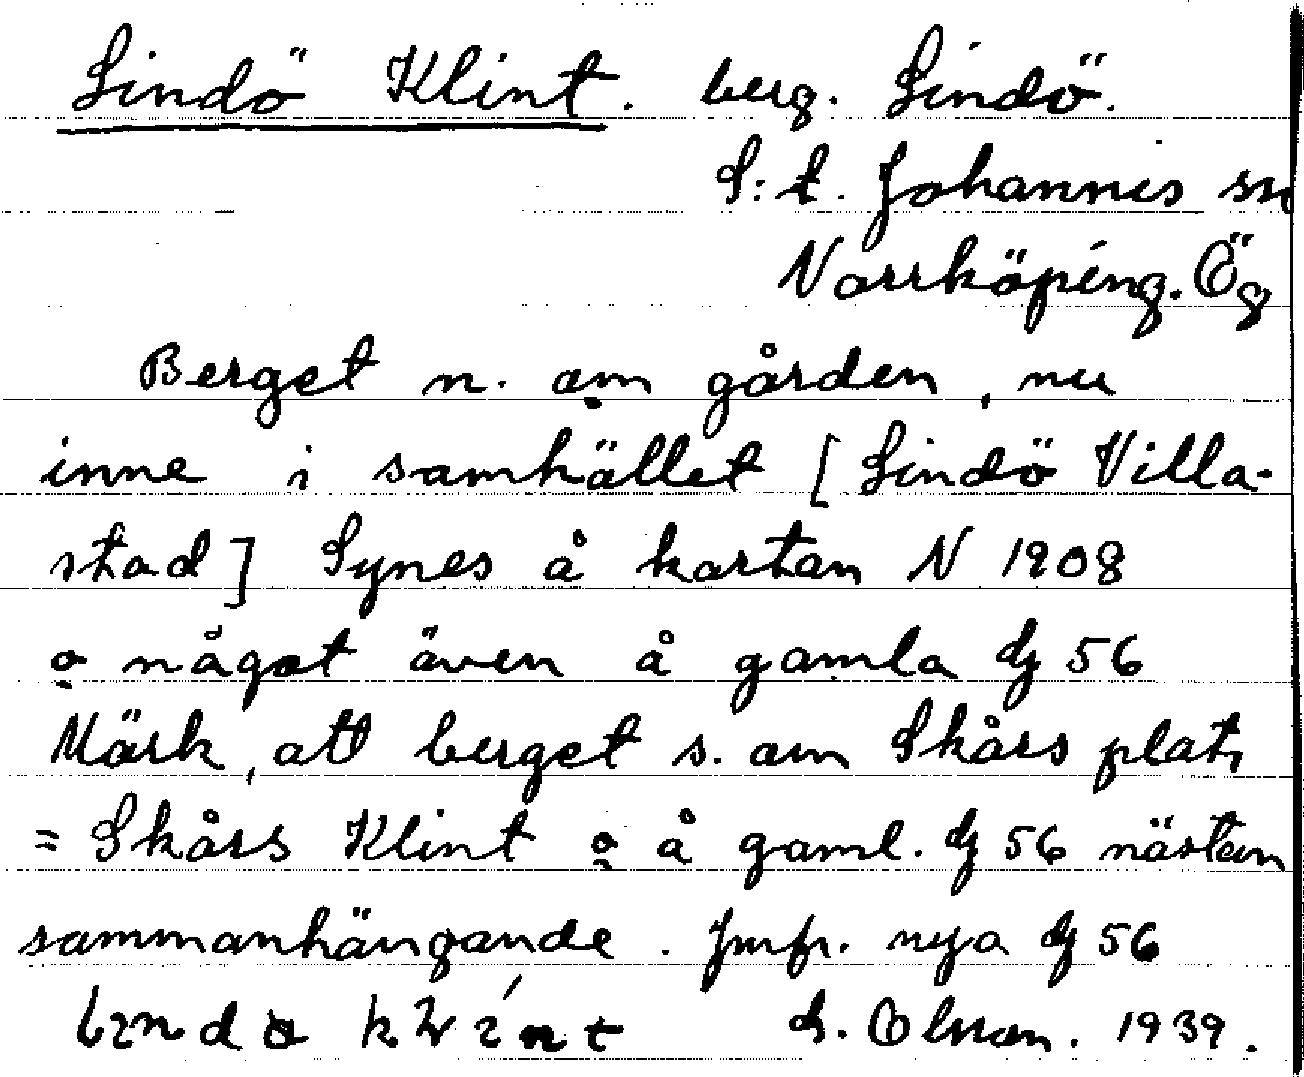 Lindö Klint. berg. Lindö.
S:t. Johannes sn
Norrköping. Ög
Berget n. om gården, nu
inne i samhället [Lindö Villa-
stad] Synes å kartan N 1908
o något även å gamla dj 56
Märk, att berget s. om Skårs plats
= Skårs Klint o å gaml. dj 56 nästan
sammanhängande. Jmfr. nya dj 56
Olsson. 1939.